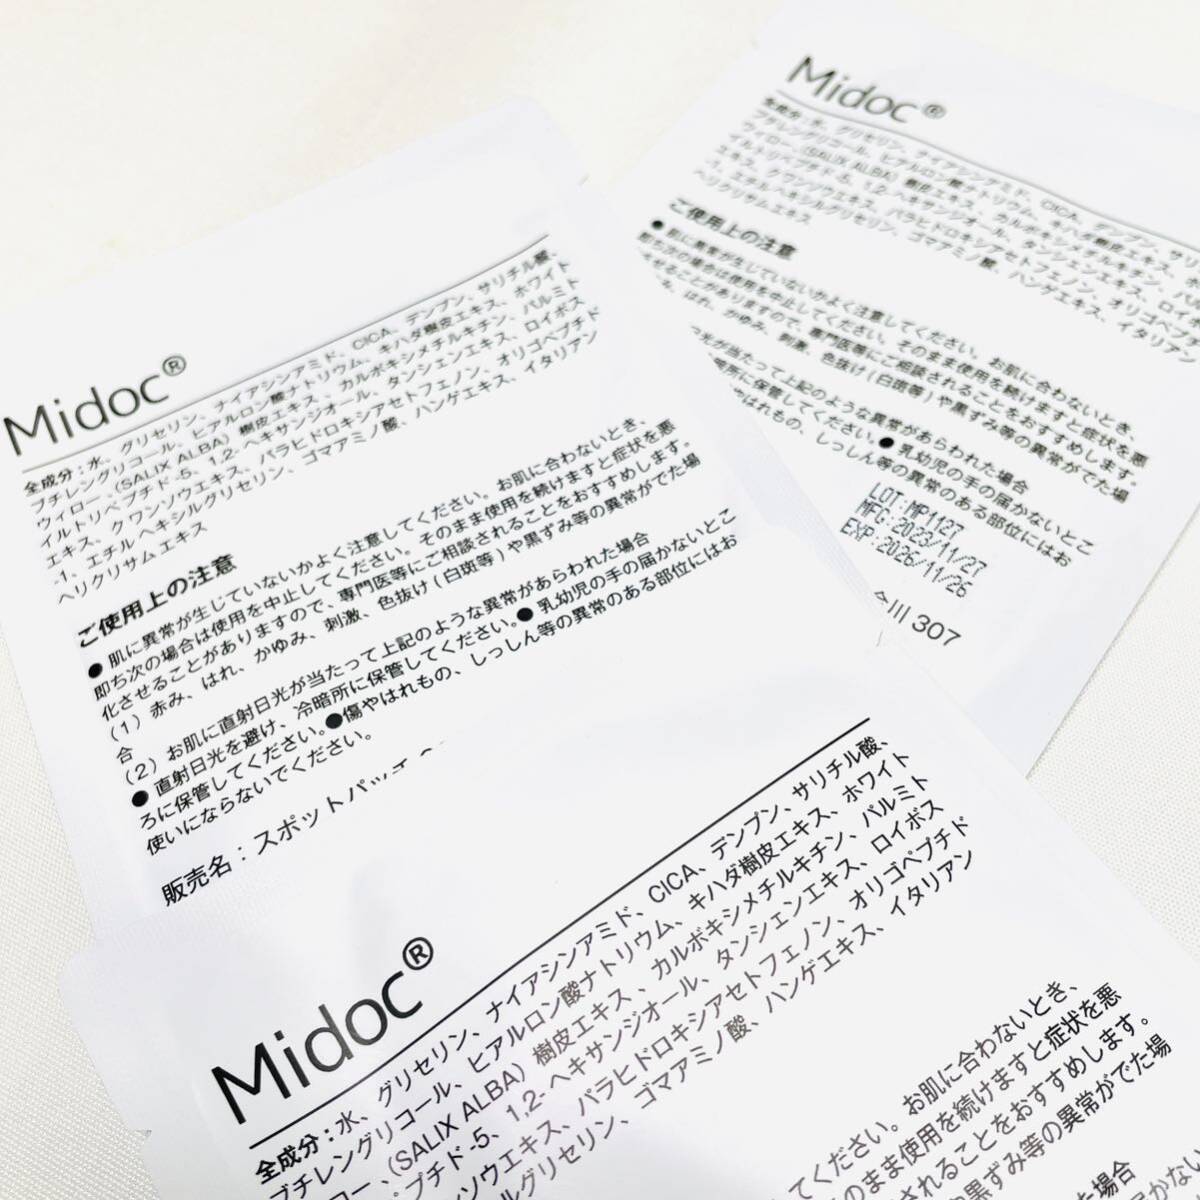 Midoc®
全成分：水、グリセリン、ナイアシンアミド、CICA、デンプン、サリチル酸、
ブチレングリコール、ヒアルロン酸ナトリウム、キハダ樹皮エキス、ホワイト
ウィロー、(SALIX ALBA) 樹皮エキス 、カルボキシメチルキチン、パルミト
イルトリペプチド-5、1,2-ヘキサンジオール、タンシェンエキス、ロイボス
エキス、クワンソウエキス、パラヒドロキシアセトフェノン、オリゴペプチド
-1、エチルヘキシルグリセリン、ゴマアミノ酸、ハンゲエキス、イタリアン
ヘリクリサムエキス
ご使用上の注意
● 肌に異常が生じていないかよく注意してください。お肌に合わないとき、
即ち次の場合は使用を中止してください。そのまま使用を続けますと症状を悪
化させることがありますので、専門医等にご相談されることをおすすめします。
（1）赤み、はれ、かゆみ、刺激、色抜け(白斑等)や黒ずみ等の異常がでた場
合
（2）お肌に直射日光が当たって上記のような異常があらわれた場合
● 直射日光を避け、冷暗所に保管してください。● 乳幼児の手の届かないとこ
ろに保管してください。●傷やはれもの、しっしん等の異常のある部位にはお
使いにならないでください。
販売名：スポットパッチ
Midoc®
全成分：水、グリセリン、ナイアシンアミド、CICA、デンプン、サリ
ブチレングリコール、ヒアルロン酸ナトリウム、キハダ樹皮エキス、
(SALIX ALBA) 樹皮エキス 、カルボキシメチルキチン、
イルトリペプチド-5、1,2-ヘキサンジオール、タンシェンエキス、ロイ
エキス、クワンソウエキス、パラヒドロキシアセトフェノン、オリゴペプチ
-1、エチルヘキシルグリセリン、ゴマアミノ酸、ハンゲエキス、イタリアン
ヘリクリサムエキス
ご使用上の注意
● 肌に異常が生じていないかよく注意してください。お肌に合わないとき、
即ち次の場合は使用を中止してください。そのまま使用を続けますと症状を悪
させることがありますので、専門医等にご相談されることをおすすめします。
はれ、かゆみ、刺激、色抜け(白斑等)や黒ずみ等の異常がでた場
光が当たって上記のような異常があらわれた場合
暗所に保管してください。● 乳幼児の手の届かないとこ
はれもの、しっしん等の異常のある部位にはお
LOT:MP1127
MFG:2023/11/27
EXP:2026/11/26
川 307
Midoc®
全成分：水、グリセリン、ナイアシンアミド、CICA、デンプン、サリチル酸、
ブチレングリコール、ヒアルロン酸ナトリウム、キハダ樹皮エキス、ホワイト
ロー、(SALIX ALBA) 樹皮エキス 、カルボキシメチルキチン、パルミト
プチド-5、1,2-ヘキサンジオール、タンシェンエキス、ロイボス
ンソウエキス、パラヒドロキシアセトフェノン、オリゴペプチド
ルグリセリン、ゴマアミノ酸、ハンゲエキス、イタリアン
てください。お肌に合わないとき、
のまま使用を続けますと症状を悪
されることをおすすめします。
黒ずみ等の異常がでた場